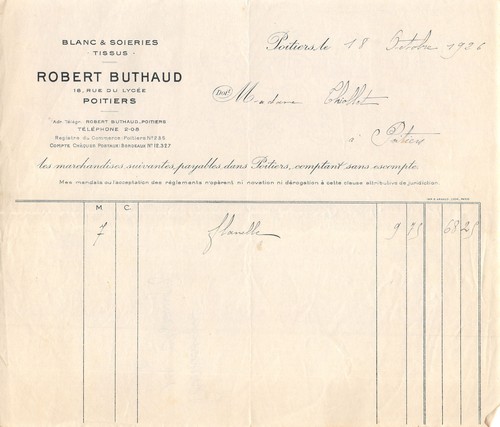 BLANC & SOIERIES
- TISSUS -
ROBERT BUTHAUD
18, RUE DU LYCÉE
POITIERS
Adr. Télégr. ROBERT BUTHAUD, POITIERS
TÉLÉPHONE 2-08
Registre du Commerce: Poitiers N° 265
COMPTE CHÈQUES POSTAUX: BORDEAUX N° 18.327
Poitiers, le 18 Octobre 1926
Doit Madame Thiollet
à Poitiers
les marchandises suivantes, payables dans Poitiers, comptant sans escompte.
Mes mandats ou l'acceptation des règlements n'opèrent ni novation ni dérogation à cette clause attributive de juridiction.
M. C.
7 flanelle 9 75 68 25